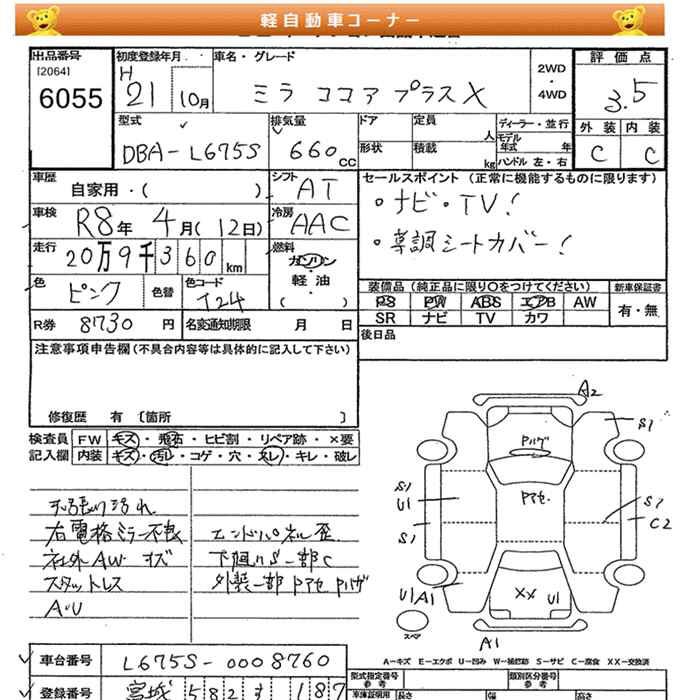 軽自動車コーナー
出品番号
[2064]
6055
初度登録年月
H
21 10月
車名・グレード
ミラ ココア プラスX
2WD
・
4WD
評価点
3.5
外装 内装
C C
型式
DBA-L675S
排気量
660 CC
ドア 定員 人
形状 積載 kg
ディーラー・並行
モデル年式 年
ハンドル 左・右
車歴
自家用・( )
シフト AT
車検 R8年 4月(12日)
冷房 AAC
走行 20万9千360km
燃料 ガソリン
・
軽油
・
( )
色 ピンク 色替
色コード T24
R券 8730円
名変通知期限 月 日
セールスポイント (正常に機能するものに限ります)
・ナビ・TV!
・革調シートカバー!
装備品 (純正品に限り○をつけてください)
PS PW ABS エアB AW
SR ナビ TV カワ
新車保証書
有・無
後日品
注意事項申告欄(不具合内容等は具体的に記入して下さい)
修復歴 有 〔箇所 〕
検査員 FW キズ・飛石・ヒビ割・リペア跡・×要
記入欄 内装 キズ・汚レ・コゲ・穴・スレ・キレ・破レ
天張り汚れ
右電格ミラー不良
社外AW キズ
スタットレス
A・U
エンドパネル歪
下廻りS一部C
外装一部Pアセ Pハゲ
A2
S1
Pハゲ
S1
U1
Pアセ
S1
S1
C2
U1A1
XX U1
スペア
A1
A-キズ E-エクボ U-凹み W-補修跡 S-サビ C-腐食 XX-交換済
車台番号 L675S-0008760
登録番号 宮城 582 す 187
型式指定番号
参考
類別区分番号
参考
車庫証明用 長さ 幅 高さ